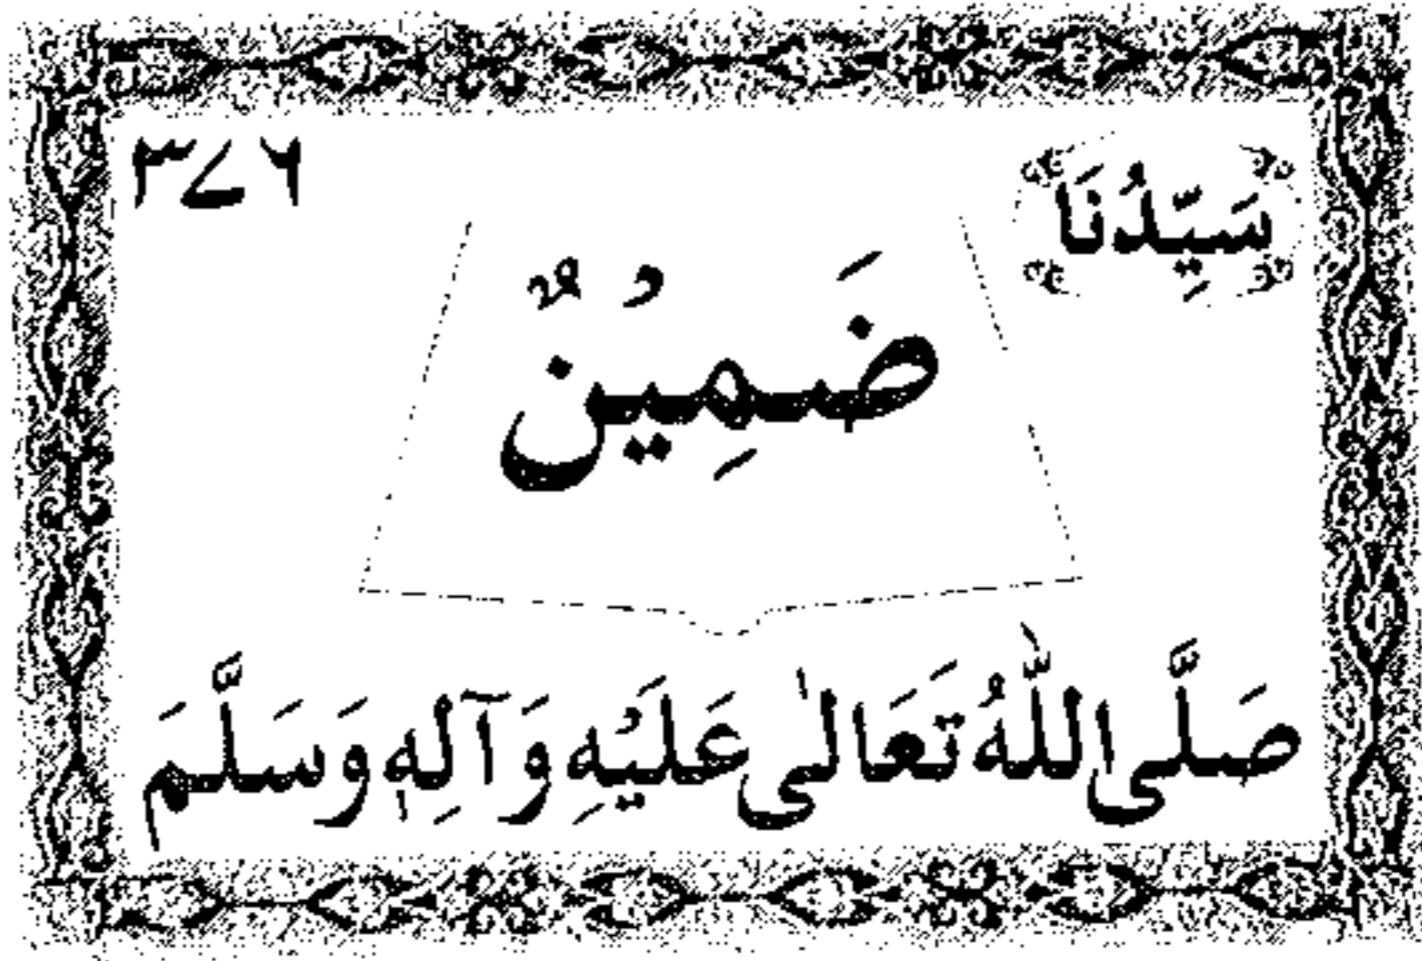 سَيِّدُنَا ٣٧٦
ضَمِيْنٌ
صَلَّى اللّٰهُ تَعَالٰى عَلَيْهِ وَآلِهٖ وَسَلَّمَ